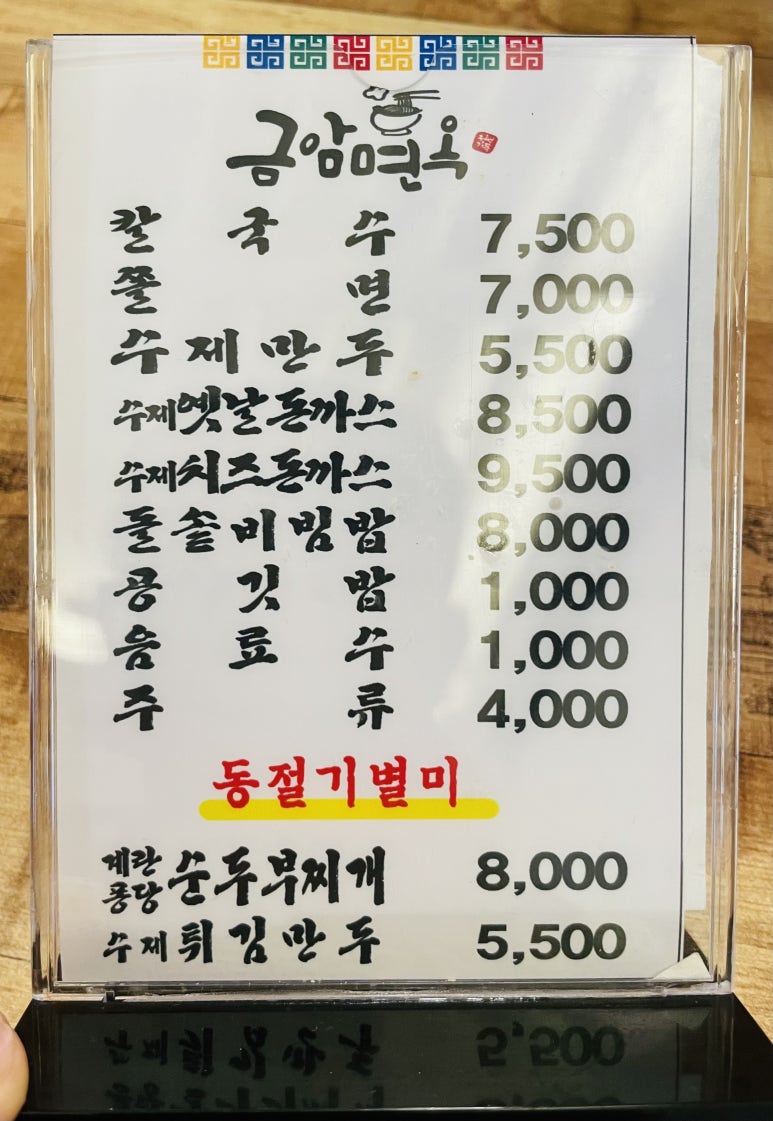 금암면옥
칼국수 7,500
쫄면 7,000
수제만두 5,500
수제옛날돈까스 8,500
수제치즈돈까스 9,500
돌솥비빔밥 8,000
공깃밥 1,000
음료수 1,000
주류 4,000
동절기별미
계란퐁당순두부찌개 8,000
수제튀김만두 5,500